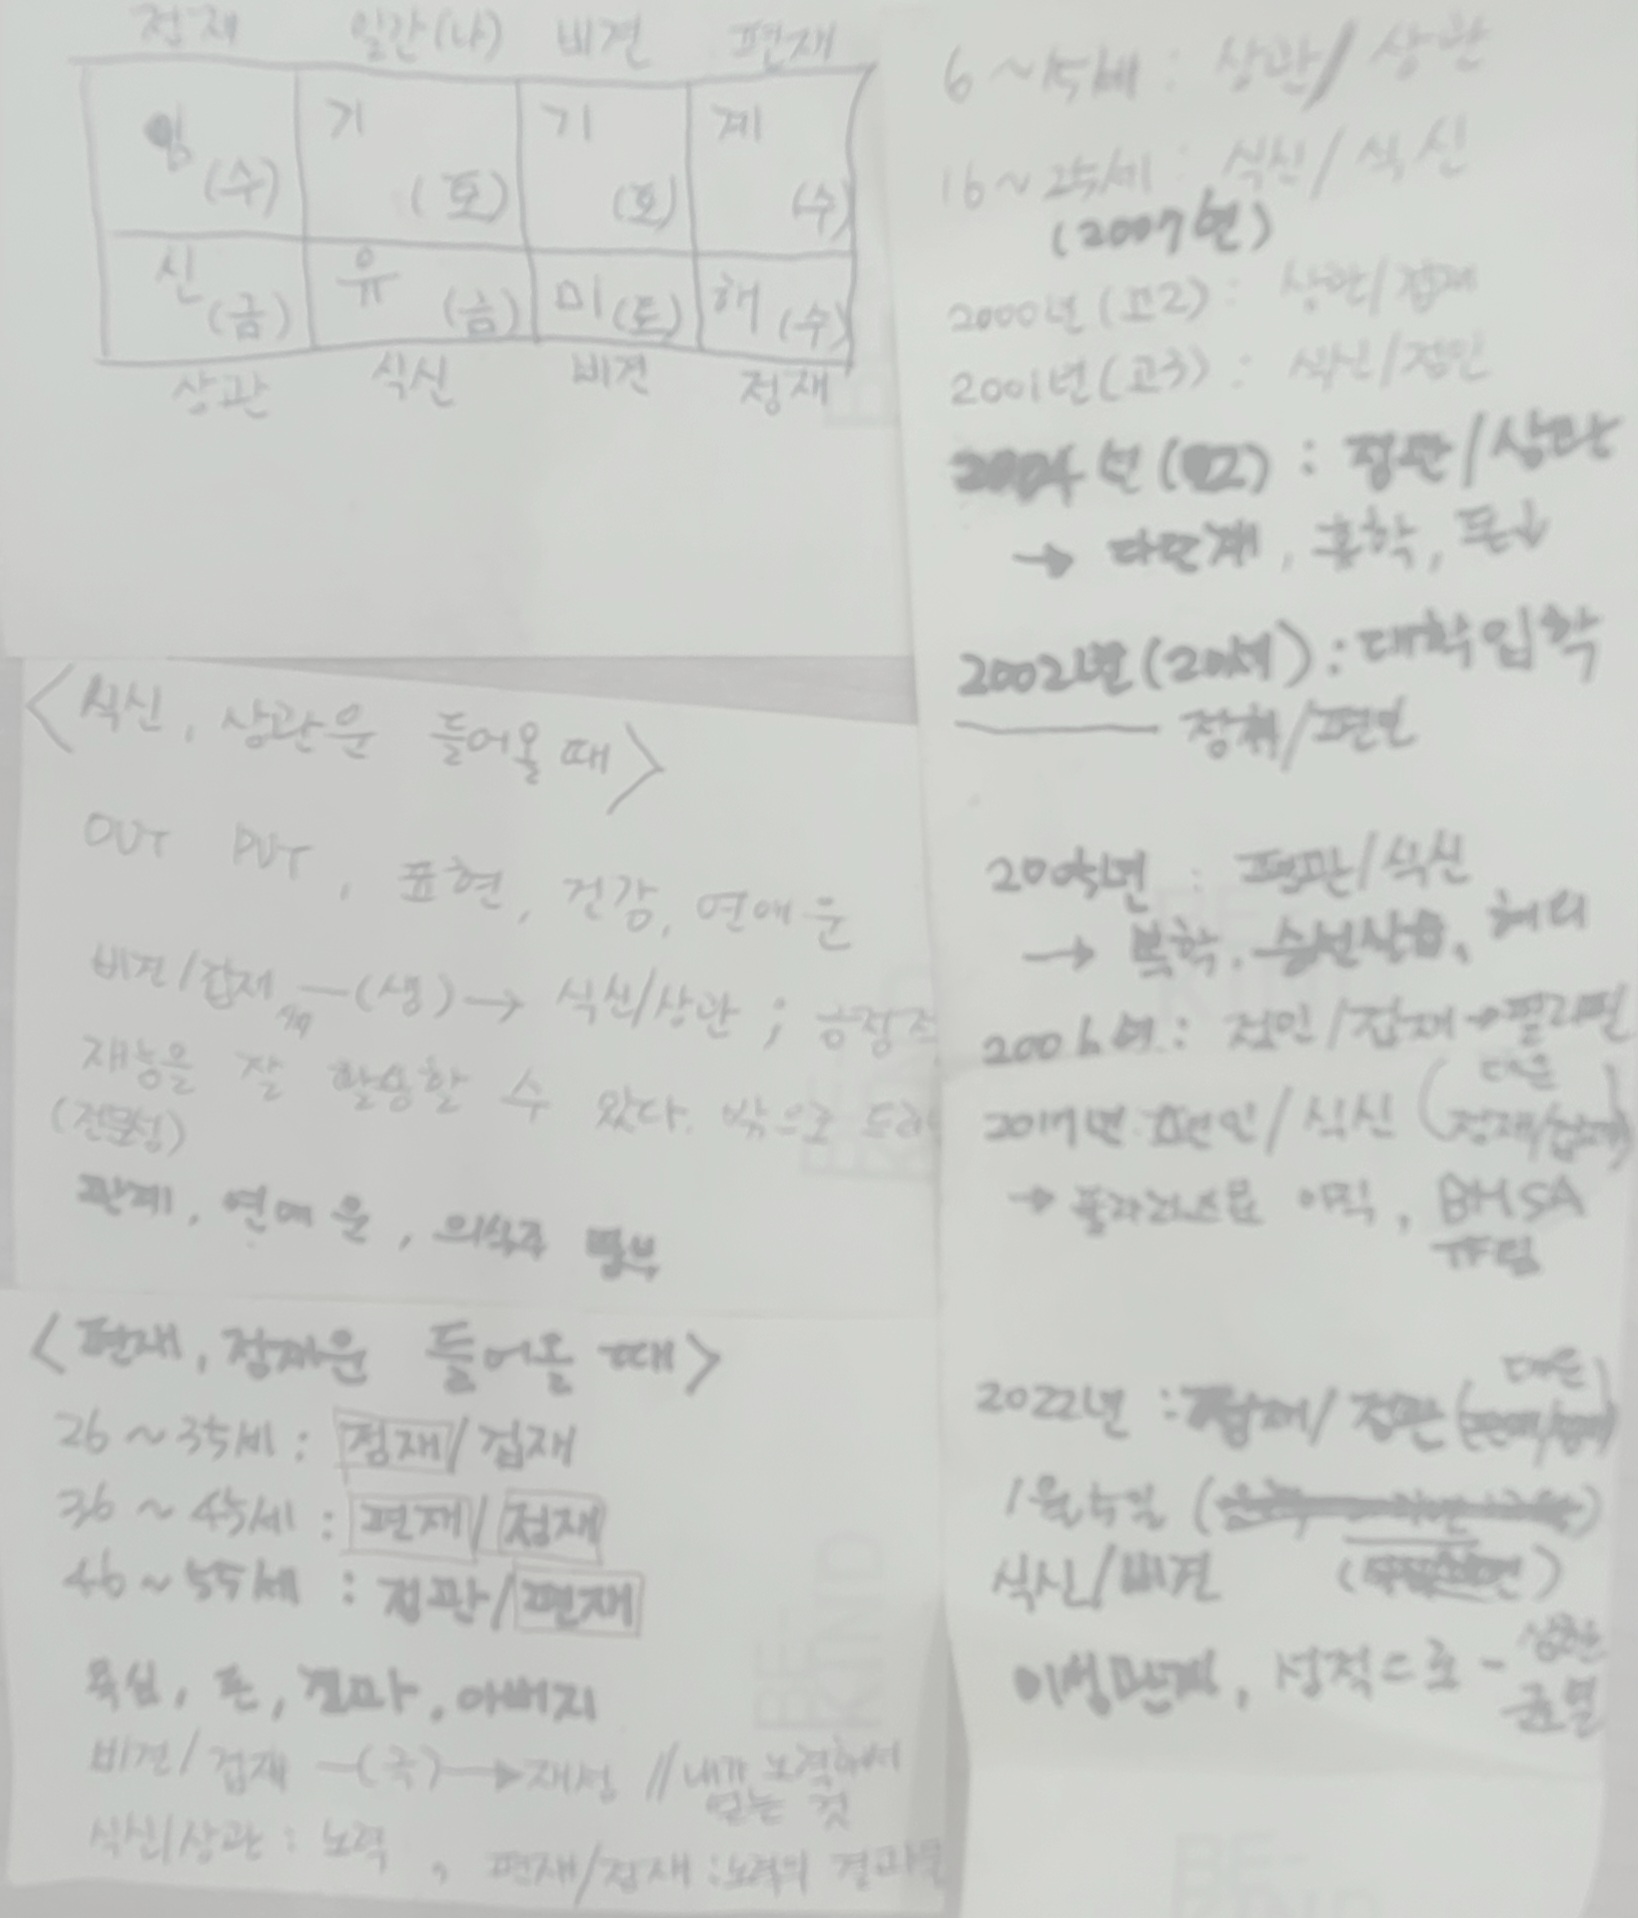 정재 일간(나) 비견 편재
임(수) 기(토) 기(토) 계(수)
신(금) 유(금) 미(토) 해(수)
상관 식신 비견 정재
<식신, 상관운 들어올 때>
OUT PUT, 표현, 건강, 연애운
비견/겁재 —(생)→ 식신/상관 ; 긍정적
재능을 잘 활용할 수 있다. 밖으로 드러
(전문성)
관계, 연애운, 의식주 풍부
<편재, 정재운 들어올 때>
26~35세 : 정재/겁재
36~45세 : 편재/정재
46~55세 : 정관/편재
욕심, 돈, 결과, 아버지
비견/겁재 —(극)→ 재성 // 내가 노력해서
얻는 것
식신/상관 : 노력, 편재/정재 : 노력의 결과물
6~15세 : 상관/상관
16~25세 : 식신/식신
(2007년)
2000년(고2) : 상관/겁재
2001년(고3) : 식신/정인
2004년( ) : 정관/상관
→ 다단계, 휴학, 돈↓
2002년(20세) : 대학입학
정재/편인
2005년 : 편관/식신
→ 복학, 승선실습, 해외
2006년 : 정인/겁재→필리핀
2017년 편인/식신 (대운
정재/겁재)
→ 폴라리스로 이직, BHSA
가입
2022년 : 정재/정관 (대운
1월 수일
식신/비견
이성관계, 성적으로 - 상관
균열